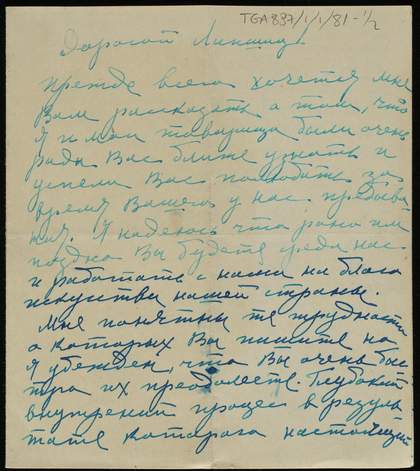 TGA 887/1/1/81 - 1/2
Дорогой
прежде всего хочется мне
Вам рассказать о том, что
я и мои товарища были очень
рады Вас ближе узнать и
успели Вас полюбить за
время Вашего у нас пребыва
ния. Я надеюсь что рано или
поздно Вы будете среди нас
и работать с нами на благо
искусства нашей страны.
Мне понятны те трудности
о которых Вы пишите но
я убежден, что Вы очень быс
тро их преодолеете. Глубокий
внутрений процес в резуль
тате которого настоящий